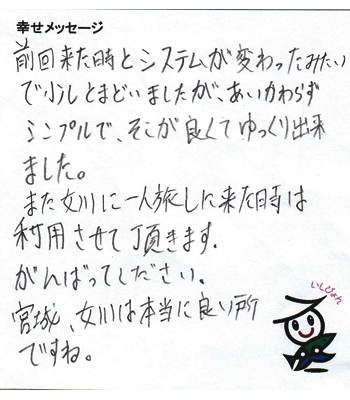 幸せメッセージ
前回来た時とシステムが変わったみたい
で少しとまどいましたが、あいかわらず
シンプルで、そこが良くてゆっくり出来
ました。
また女川に一人旅しに来た時は
利用させて頂きます.
がんばってください。
宮城、女川は本当に良い所
ですね。
いしぴょん